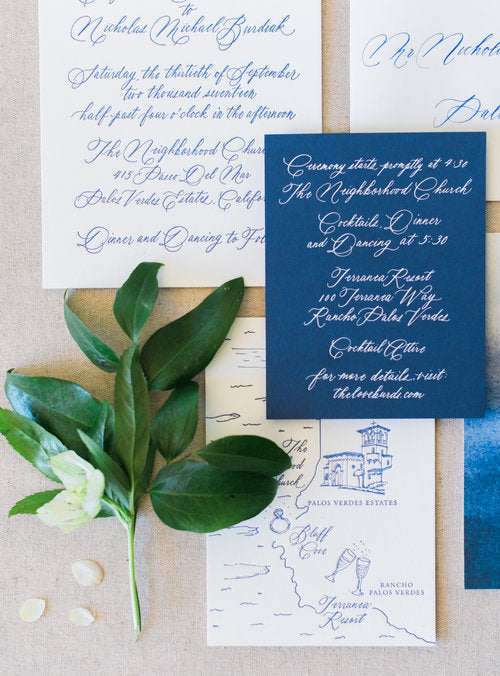 to
Nicholas Michael Burdiak
Saturday, the thirtieth of September
two thousand seventeen
half past four o'clock in the afternoon
The Neighborhood Church
415 Paseo Del Mar
Palos Verdes Estates, Califo
Dinner and Dancing to Fol
Mr Nichola
Palo
Ceremony starts promptly at 4:30
The Neighborhood Church
Cocktails, Dinner
and Dancing at 5:30
Terranea Resort
100 Terranea Way
Rancho Palos Verdes
Cocktail Attire
for more details visit:
theloveburds.com
The
Church
PALOS VERDES ESTATES
Bluff
Cove
RANCHO
PALOS VERDES
Terranea
Resort